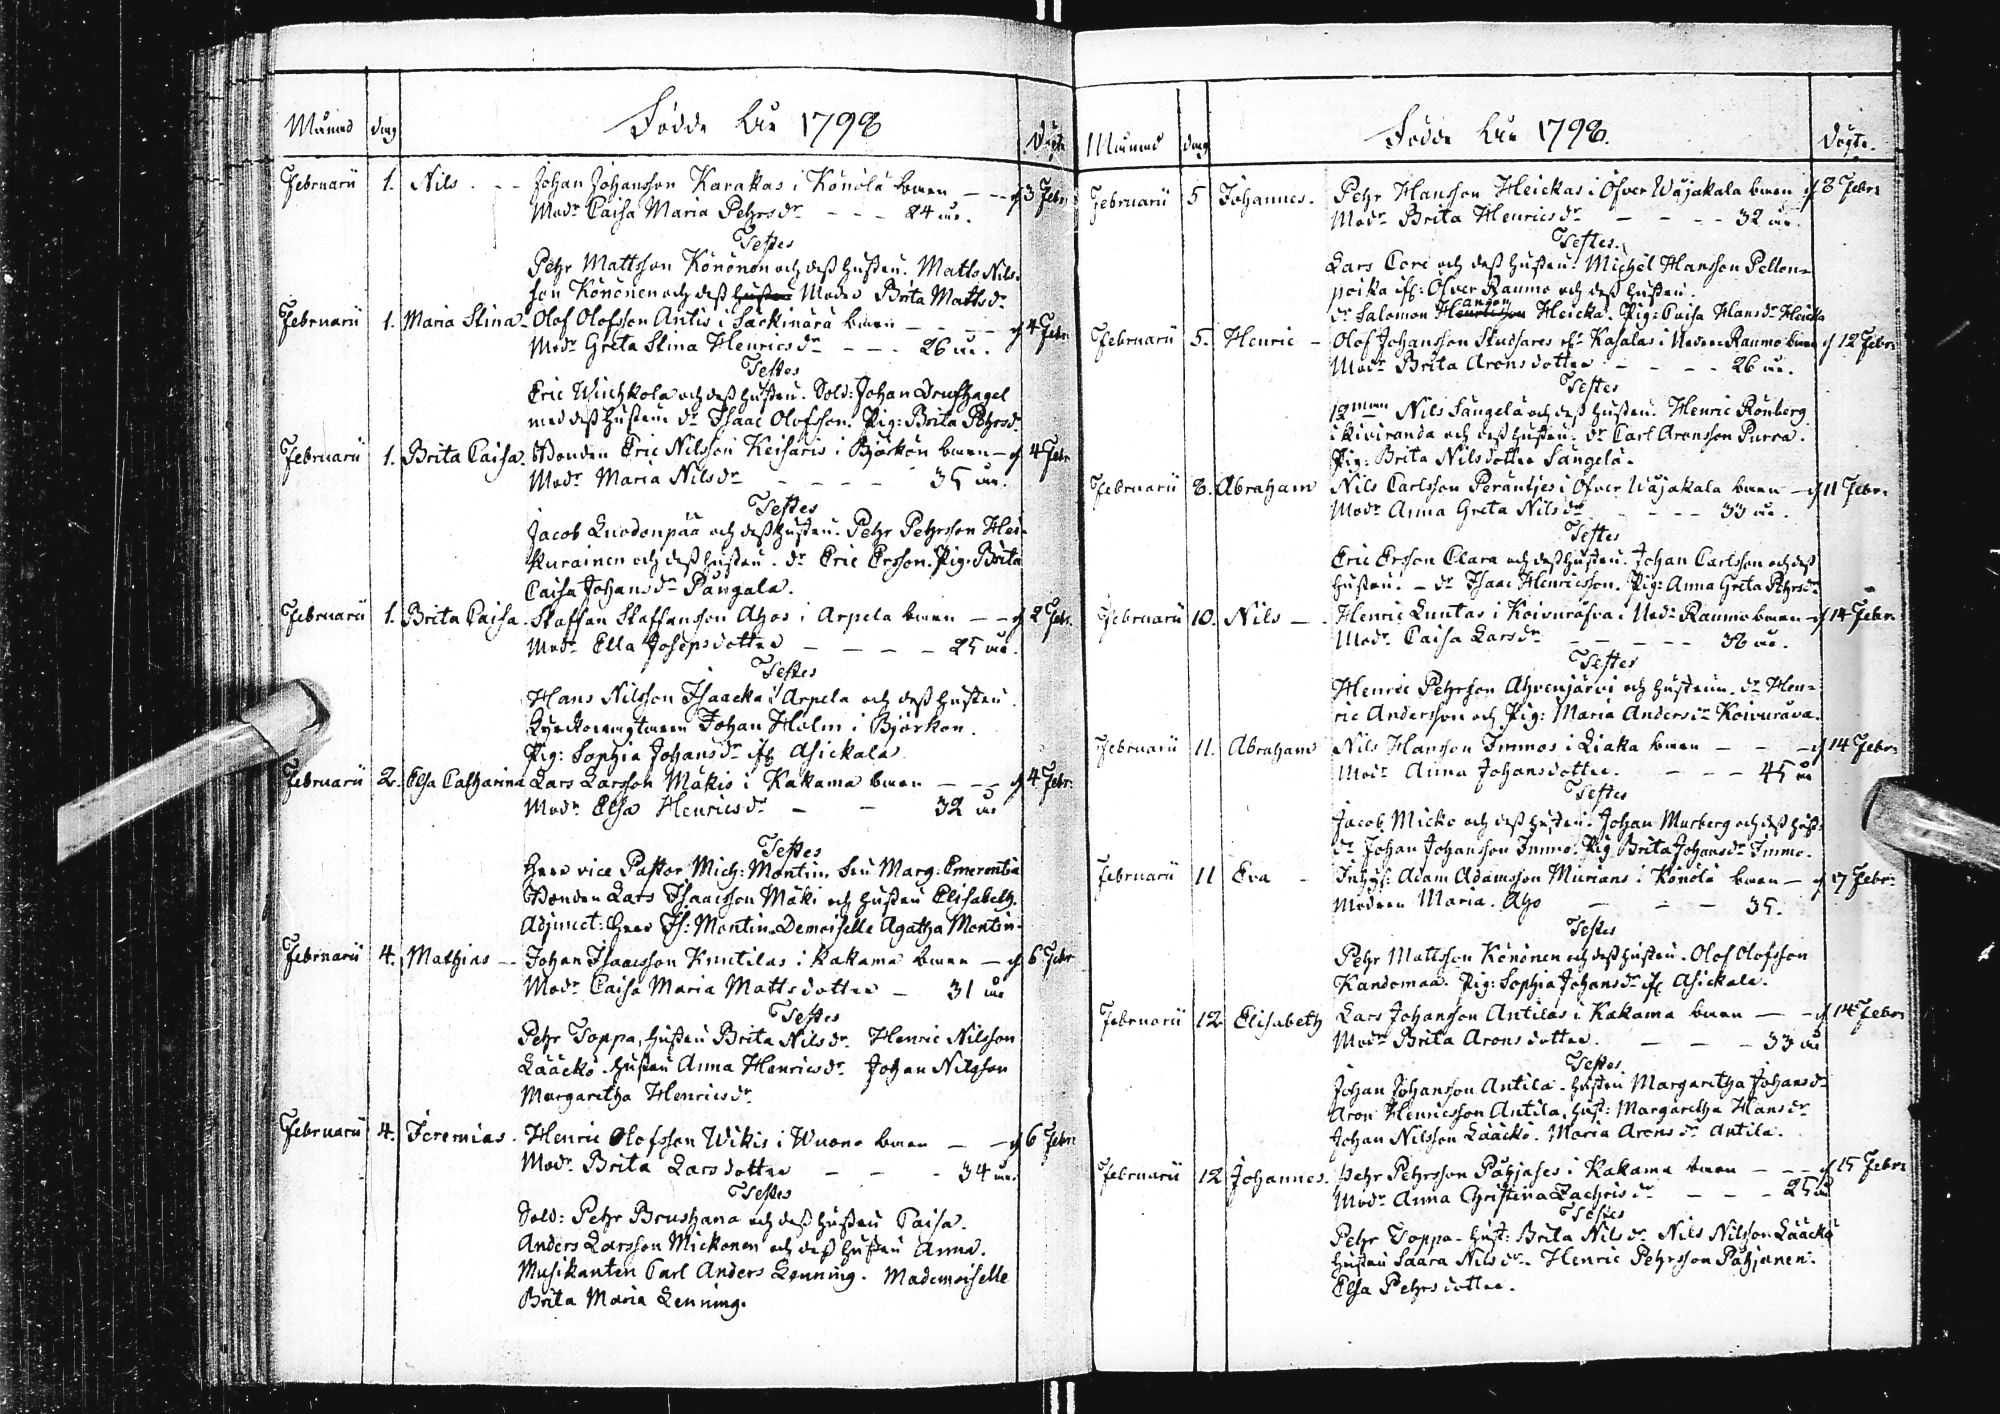 Månad dag Födde År 1798 Döpte
Februarii 1. Nils - - Johan Johansson Karakas i Könölä barn - - d 3 Febr:
Modr Caisa Maria Pehrsdr - - - 24 år.
Testes
Pehr Mattsson Könönen och dess hustru. Matts Nils-
son Könönen och dess hustru Moder Brita Mattsdr
Februarii 1. Maria Stina - Olof Olofsson Antis i Särkinärä barn - - - d 4 Febr
Modr Greta Stina Henricsdr - - - 26 år.
Testes
Eric Wuchkola och dess hustru. Sold: Johan Drufhagel
med dess hustru. dr Isaac Olofsson. Pig: Brita Pehrsd.
Februarii 1. Brita Caisa. Bonden Eric Nilsson Keisaris i Björkön barn - d 4 Febr
Modr Maria Nilsdr - - - - 35 år.
Testes
Jacob Luodonpää och dess hustru. Pehr Pehrsson Hei-
kurainen och dess hustru. dr Eric Ersson. Pig: Brita
Caisa Johansdr Pungala.
Februarii 1. Brita Caisa. Staffan Staffansson Ahos i Arpela barn - - d 2 Febr.
Modr Ella Josepsdotter - - - - 25 år.
Testes
Hans Nilsson Isaacka i Arpela och dess hustru.
Johan Holm i Björkön.
Pig: Sophia Johansdr Asickala
Februarii 2. Elsa Catharina Lars Larsson Mäkis i Kakama barn - - - d 4 Febr:
Modr Elsa Henricsdr - - 32 år
Testes
Herr vice Pastor Mich: Montin. Fru Marg: Emerentia
Bonden Lars Isaacsson Mäki och hustru Elisabeth.
Adjunct: Herr Is: Montin. Demoiselle Agatha Montin.
Februarii 4. Mathias - Johan Isaacsson Knutilas i Kakama barn - d 6 Febr
Modr Caisa Maria Mattsdotter - 31 år
Testes
Pehr Toppa, hustru Brita Nilsdr. Henric Nilsson
Lääckö. hustru Anna Henricsdr. Johan Nilsson
Margaretha Henricsdr
Februarii 4. Jeremias. Henric Olofsson Wikis i Wuono barn - - d 6 Febr:
Modr Brita Larsdotter - - - 34 år.
Testes
Sold: Pehr Brushana och dess hustru Caisa.
Anders Larsson Mickonen och dess hustru Anna.
Musikanten Carl Anders Lenning. Mademoiselle
Brita Maria Lenning.
Månad dag Födde År 1798. Döpte.
Februarii 5 Johannes. Pehr Hansson Heickas i Öfver Wäjakala barn d 8 Febr:
Modr Brita Henricsdr - - - - 32 år.
Testes.
Lars Core och dess hustru. Michel Hansson Pellon-
poika if: Öfver Raumo och dess hustru.
dr Salomon Hansson Heicka. Pig: Caisa Hansdr Heicka
Februarii 5. Henric - Olof Johansson Studsares if: Kasalas i Neder Raumo barn d 12 Febr:
Modr Brita Aronsdotter - - - - 26 år.
Testes
12man Nils Sangelä och dess hustru. Henric Rönberg
i Kiviranda och dess hustru. dr Carl Aronsson Purra.
Pig: Brita Nilsdotter Sangelä.
Februarii 8. Abraham Nils Carlsson Peräntjes i Öfver Wäjakala barn - d 11 Febr:
Modr Anna Greta Nilsdr - - - - 33 år.
Testes
Eric Ersson Clara och dess hustru. Johan Carlsson och dess
hustru. - dr Isaac Henricsson. Pig: Anna Greta Pehrsdr
Februarii 10. Nils - . Henric Luntas i Koivuräfva i Nedr Raumo barn d 14 Febr:
Modr Caisa Larsdr - - - - 38 år.
Testes
Henric Pehrsson Ahvenjärvi och hustrun. dr Hen-
ric Andersson och Pig: Maria Andersdr Koivuräva.
Februarii 11. Abraham Nils Hansson Immos i Liaka barn - - - d 14 Febr:
Modr Anna Johansdotter. - - - 45 år
Testes
Jacob Micko och dess hustru. Johan Murberg och dess hust:
dr Johan Johansson Immo. Pig Brita Johansdr Immo.
Februarii 11 Eva - Inhys: Adam Adamsson Murians i Könölä barn - d 17 Febr:
Modren Maria. Aho - - - 35.
Testes
Pehr Mattsson Könönen och dess hustru. Olof Olofsson
Kandomaa. Pig: Sophia Johansdr Asickala.
Februarii 12 Elisabeth Lars Johansson Antilas i Kakama barn - - d 14 Febr:
Modr Brita Aronsdotter. - - - 33 år
Testes
Johan Johansson Antila. hustru Margaretha Johansdr
Aron Henricsson Antila, hust: Margaretha Hansdr
Johan Nilsson Lääckö. Maria Aronsdr Antila.
Februarii 12 Johannes. Pehr Pehrsson Päjäses i Kakama barn - - - d 15 Febr:
Modr Anna Christina Zachrisdr - - - 25 år
Testes
Pehr Toppa. hust: Brita Nilsdr Nils Nilsson Lääckö
hustru Saara Nilsdr. Henric Pehrsson Päjänen.
Elsa Pehrsdotter.